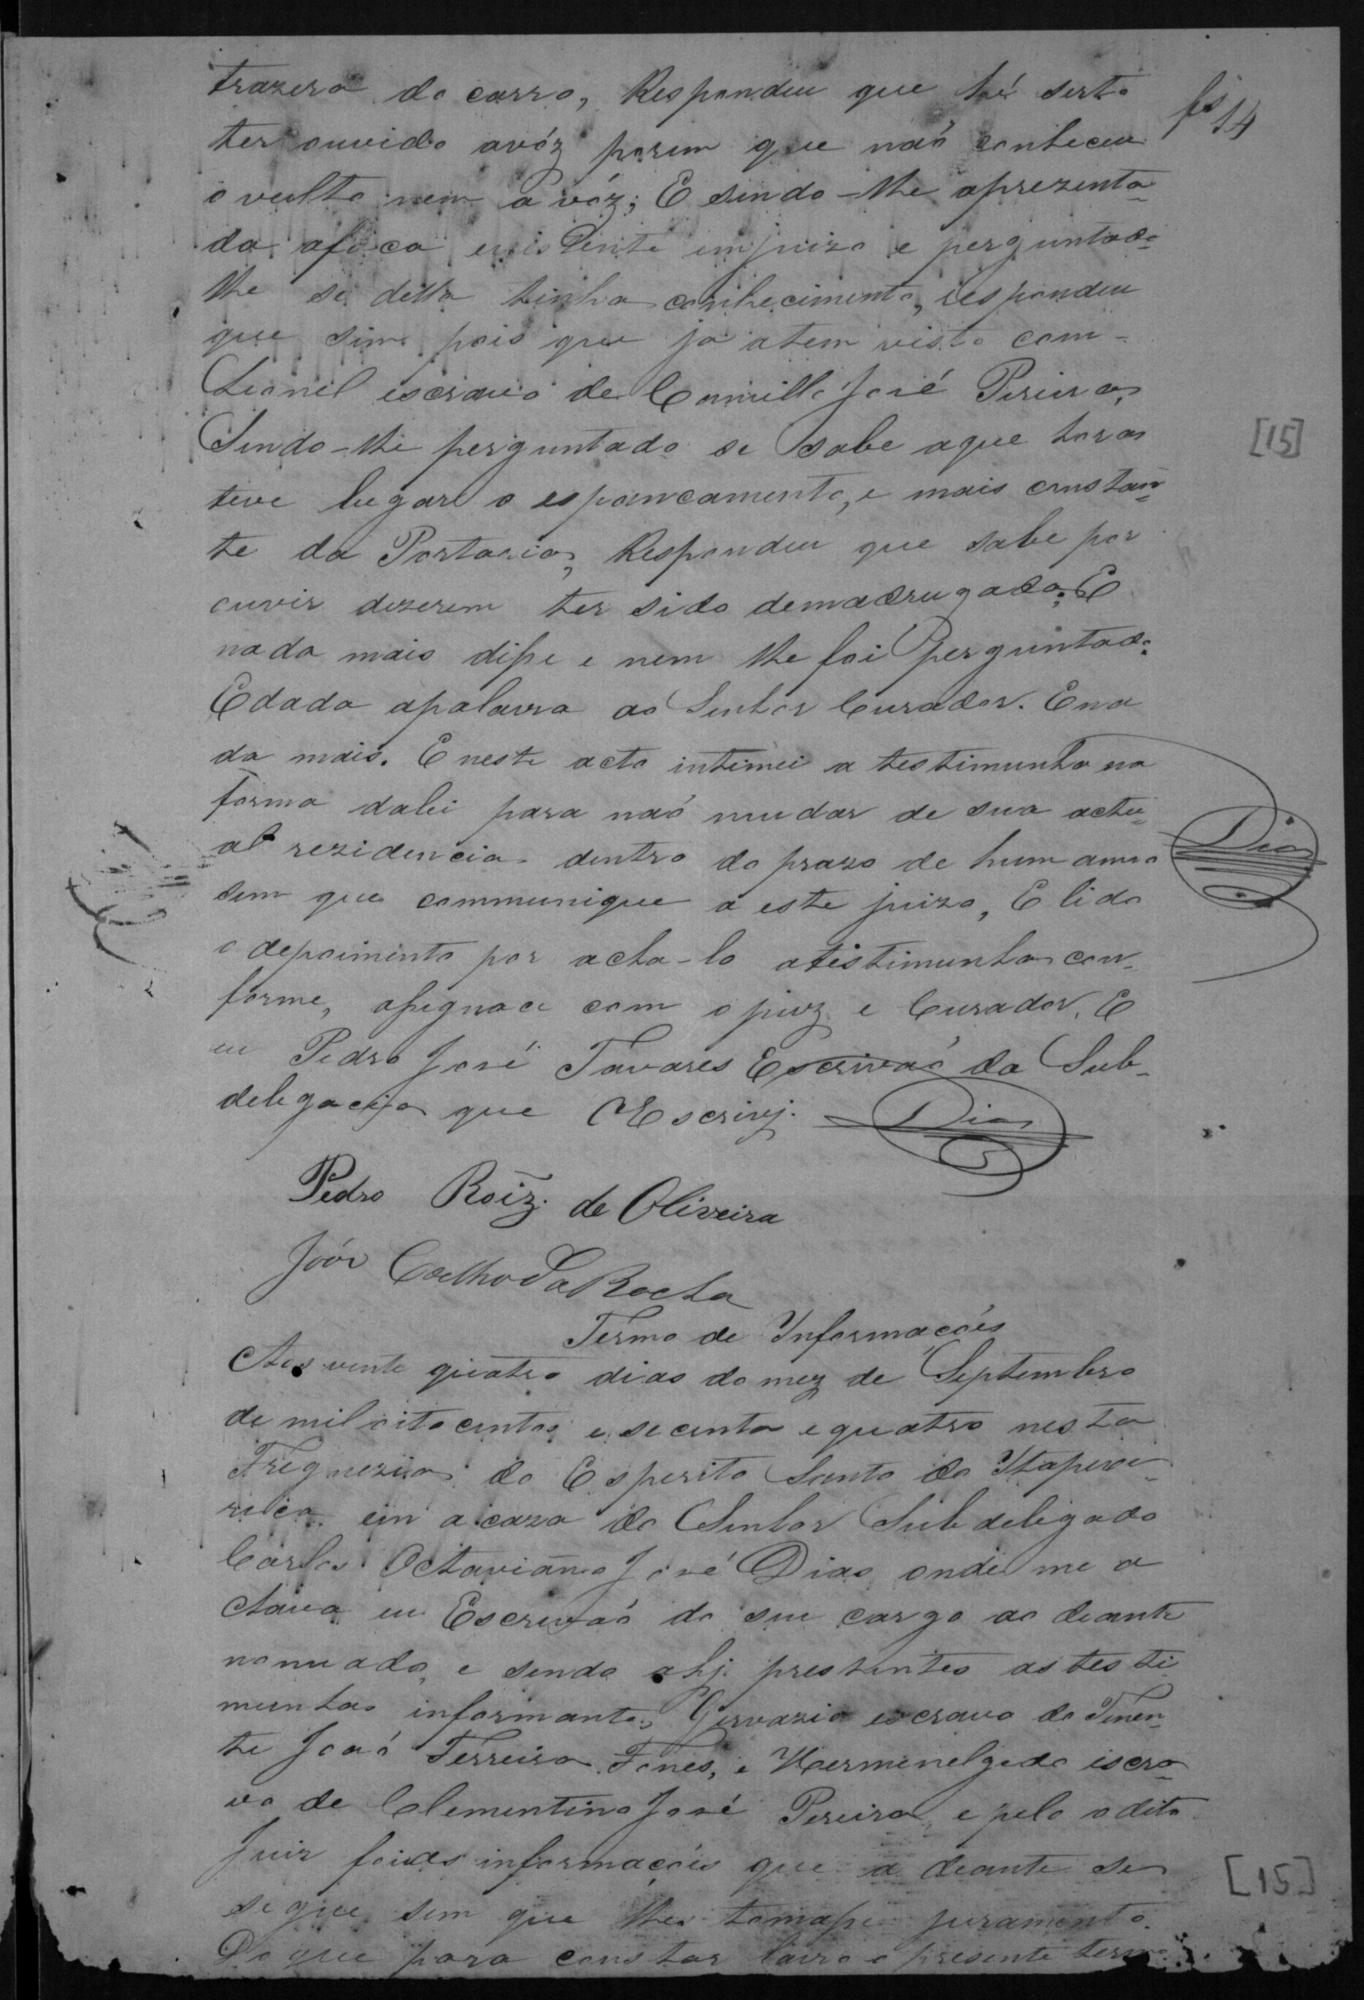 fs 14
trazera do carro, Respondeu que hé serto
ter ouvido avóz porem que naõ conheceu
o vulto nem a vóz; E sendo-lhe aprezenta-
da afaca existente emjuizo e perguntado-
lhe se della tinha conhecimento, respondeu
que sim pois que ja atem visto com-
Leonel escravo de Camillo José Pereira,
Sendo-lhe perguntado se sabe aque horas
teve lugar o espancamento, e mais constan-
te da Portaria, Respondeu que sabe por
ouvir dizerem ter sido demadrugada. E
nada mais diſse e nem lhe foi perguntado.
Edada apalavra ao Senhor Curador. Ena
da mais. E neste acto intimei a testimunha na
forma dalei para naõ mudar de sua actu-
al rezidencia dentro do prazo de hum anno
sem que communique a este juizo, E lido
o depoimento por acha-lo atestimunha con-
forme, aſsignou com o juiz e Curador. E
eu Pedro José Tavares Escrivaõ da Sub-
delegacia que Escrivj.
Dias
Dias
Pedro Roiz. de Oliveira
João Coelho da Rocha
Termo de Informaçoẽs
Aos vente quatro dias do mez de Septembro
de mil oitocentos e secenta e quatro nesta
Freguezia do Esperito Santo do Itapece-
rica em a caza do Senhor Subdelegado
Carlos Octaviano José Dias onde me a
chava eu Escrivaõ do seu cargo ao deante
nomiado, e sendo ahj prezentes as testi
munhas informantes, Gervazio escravo do Tenen-
te Joaõ Ferreira Fones, e Hermenelgedo iscra-
vo de Clementino José Pereira, e pelo o dito
Juiz foi as informaçoẽs que a deante se
segue sem que lhes tomaſse juramento.
Do que para constar lavro o presente termo
[15]
[15]